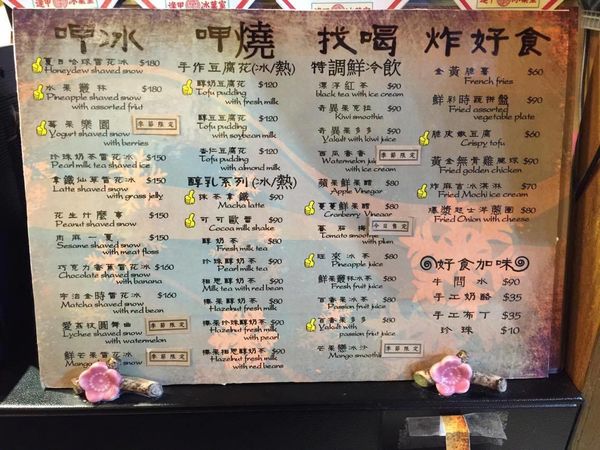 呷冰
夏日哈球雪花冰 $180
Honeydew shaved snow
水果叢林 $180
Pineapple shaved snow
with assorted friut
莓果樂園 季節限定
Yogurt shaved snow
with berries
珍珠奶茶雪花冰 $150
Pearl milk tea shaved ice
拿鐵仙草雪花冰 $150
Latte shaved snow
with grass jelly
花生什麼事 $150
Peanut shaved snow
肉麻一夏 $150
Sesame shaved snow
with meat floss
巧克力香蕉雪花冰 $160
Chocolate shaved snow
with banana
宇治金時雪花冰 $160
Matcha shaved snow
with red bean
愛荔枝圓舞曲 季節限定
Lychee shaved snow
with watermelon
鮮芒果雪花冰 季節限定
Mango shaved snow
呷燒
手作豆腐花(冰/熱)
醇奶豆腐花 $120
Tofu pudding
with fresh milk
豆漿豆腐花 $120
Tofu pudding
with soybean milk
杏仁豆腐花 $120
Tofu pudding
with almond milk
醇乳系列(冰/熱)
抹茶拿鐵 $90
Matcha latte
可可歐蕾 $90
Cocoa milk shake
醇奶茶 $80
Fresh milk tea
珍珠醇奶茶 $90
Pearl milk tea
相思醇奶茶 $90
Milk tea with red bean
榛果醇奶茶 $80
Hazelnut fresh milk
榛果珍珠醇奶茶 $90
Hazelnut fresh milk
with pearl
榛果相思醇奶茶 $90
Hazelnut fresh milk
with red beans
找喝
特調鮮冷飲
漂浮紅茶 $90
black tea with ice cream
奇異果克拉 $90
Kiwi smoothie
奇異果多多 $90
Yakult with kiwi juice
西瓜牛奶 季節限定
Watermelon juice
with ice cream
蘋果鮮果醋 $80
Apple Vinegar
夏夏鮮果醋 $80
Cranberry Vinegar
蕃茄梅 今日售完
Tomato smoothie
with plum
旺來冰茶 $80
Pineapple juice
鮮果叢林冰茶 $80
Fresh fruit juice
百香果冰茶 $80
Passion fruit juice
百香果多多 $80
Yakult with
passion fruit juice
芒果戀冰沙 季節限定
Mango smoothie
炸好食
金黃脆薯 $60
French fries
鮮彩時蔬拼盤 $90
Fried assorted
vegetable plate
脆皮嫩豆腐 $60
Crispy tofu
黃金無骨雞腿球 $90
Fried golden chicken
炸麻吉冰淇淋 $70
Fried Mochi ice cream
爆漿起士洋蔥圈 $80
Fried Onion with cheese
好食加味
牛問水 $90
手工奶酪 $35
手工布丁 $35
珍珠 $10